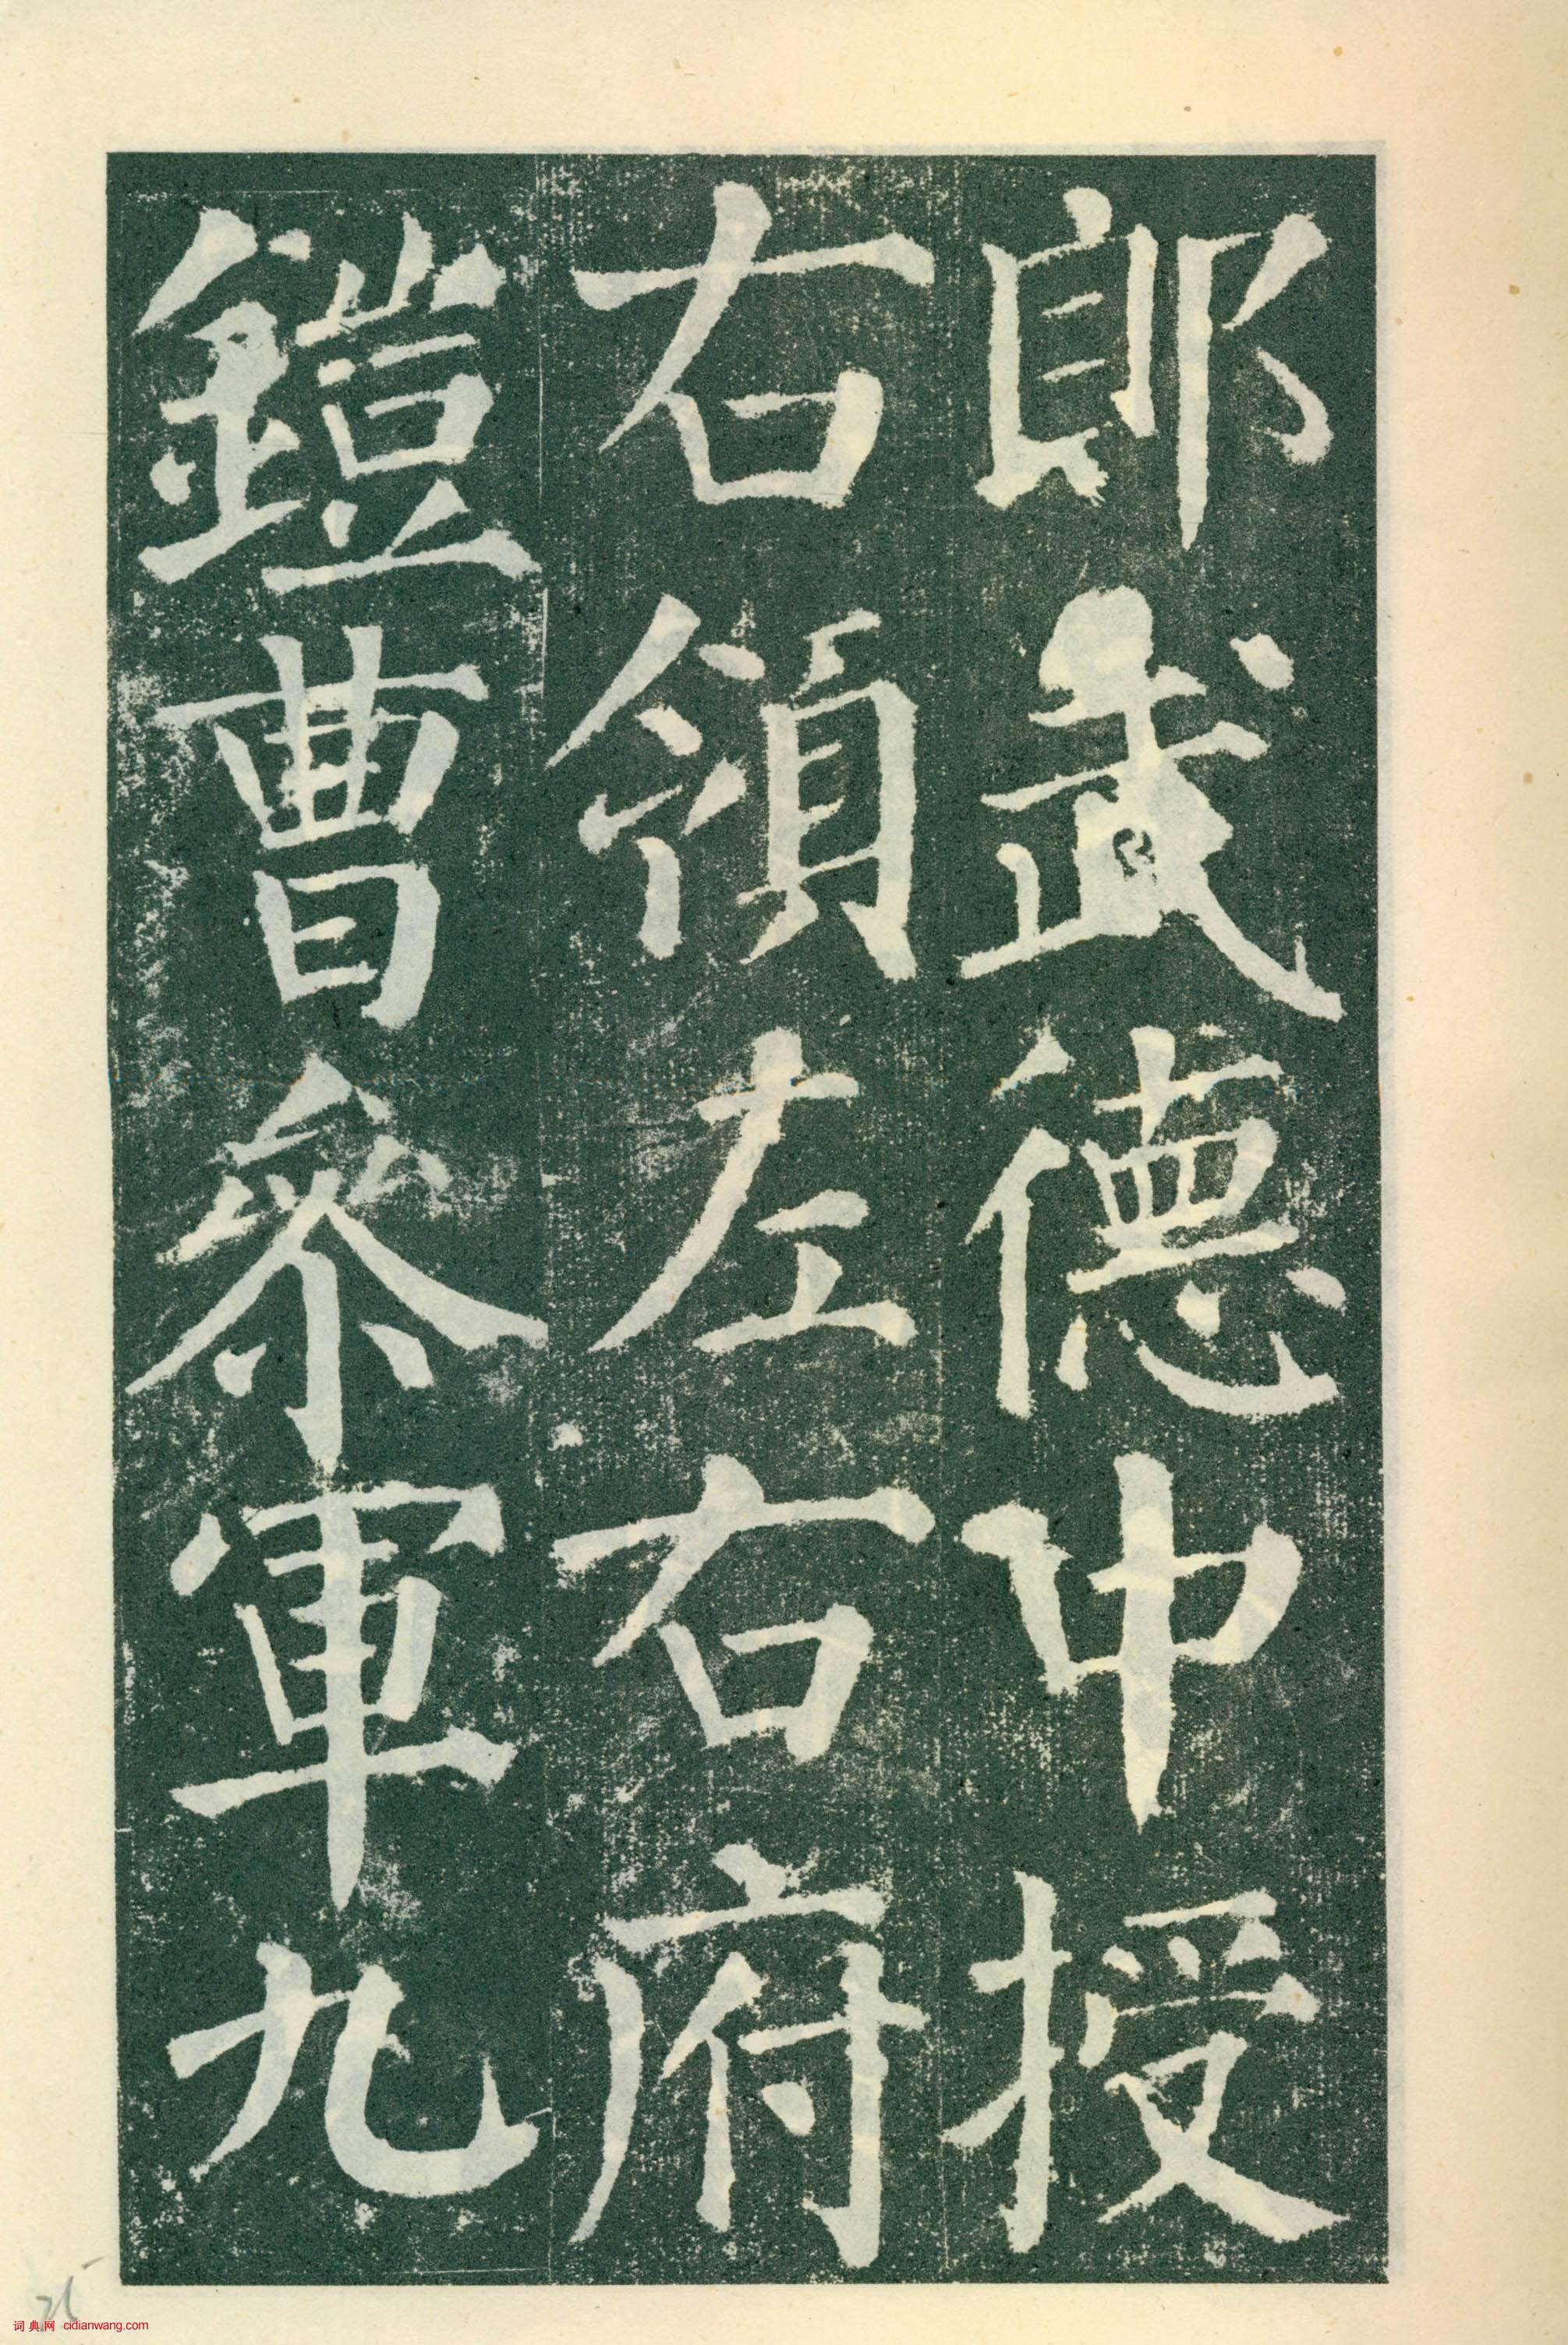 郎武德中授
右領左右府
鎧曹參軍九
词典网 cidianwang.com